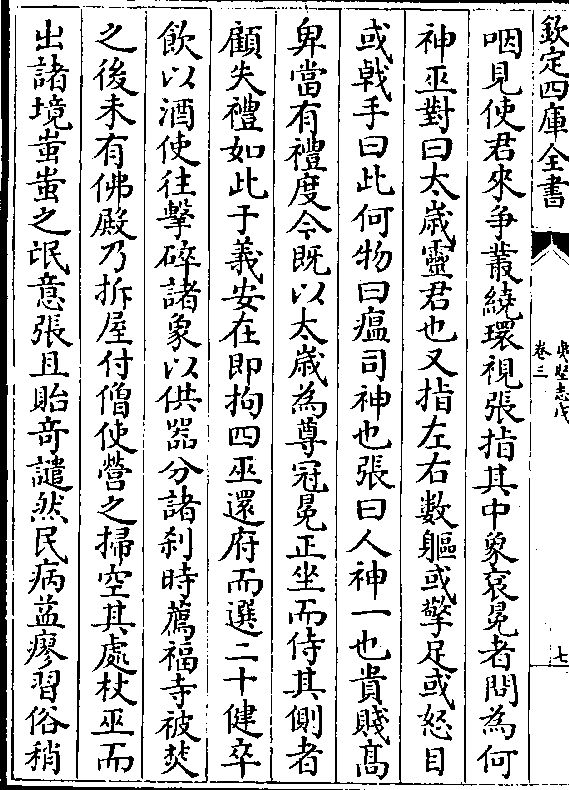 欽定四庫全書
夷堅志戊
卷三
七
咽見使君來爭叢繞環視張指其中象袞冕者問為何
神巫對曰太歲靈君也又指左右數軀或擎足或怒目
或戟手曰此何物曰瘟司神也張曰人神一也貴賤髙
卑當有禮度今既以太歲為尊冠冕正坐而侍其側者
顧失禮如此于義安在即拘四巫還府而選二十健卒
飲以酒使往擊碎諸象以供器分諸刹時薦福寺被焚
之後未有佛殿乃拆屋付僧使營之掃空其處杖巫而
出諸境蚩蚩之氓意張且貽奇譴然民病益瘳習俗稍